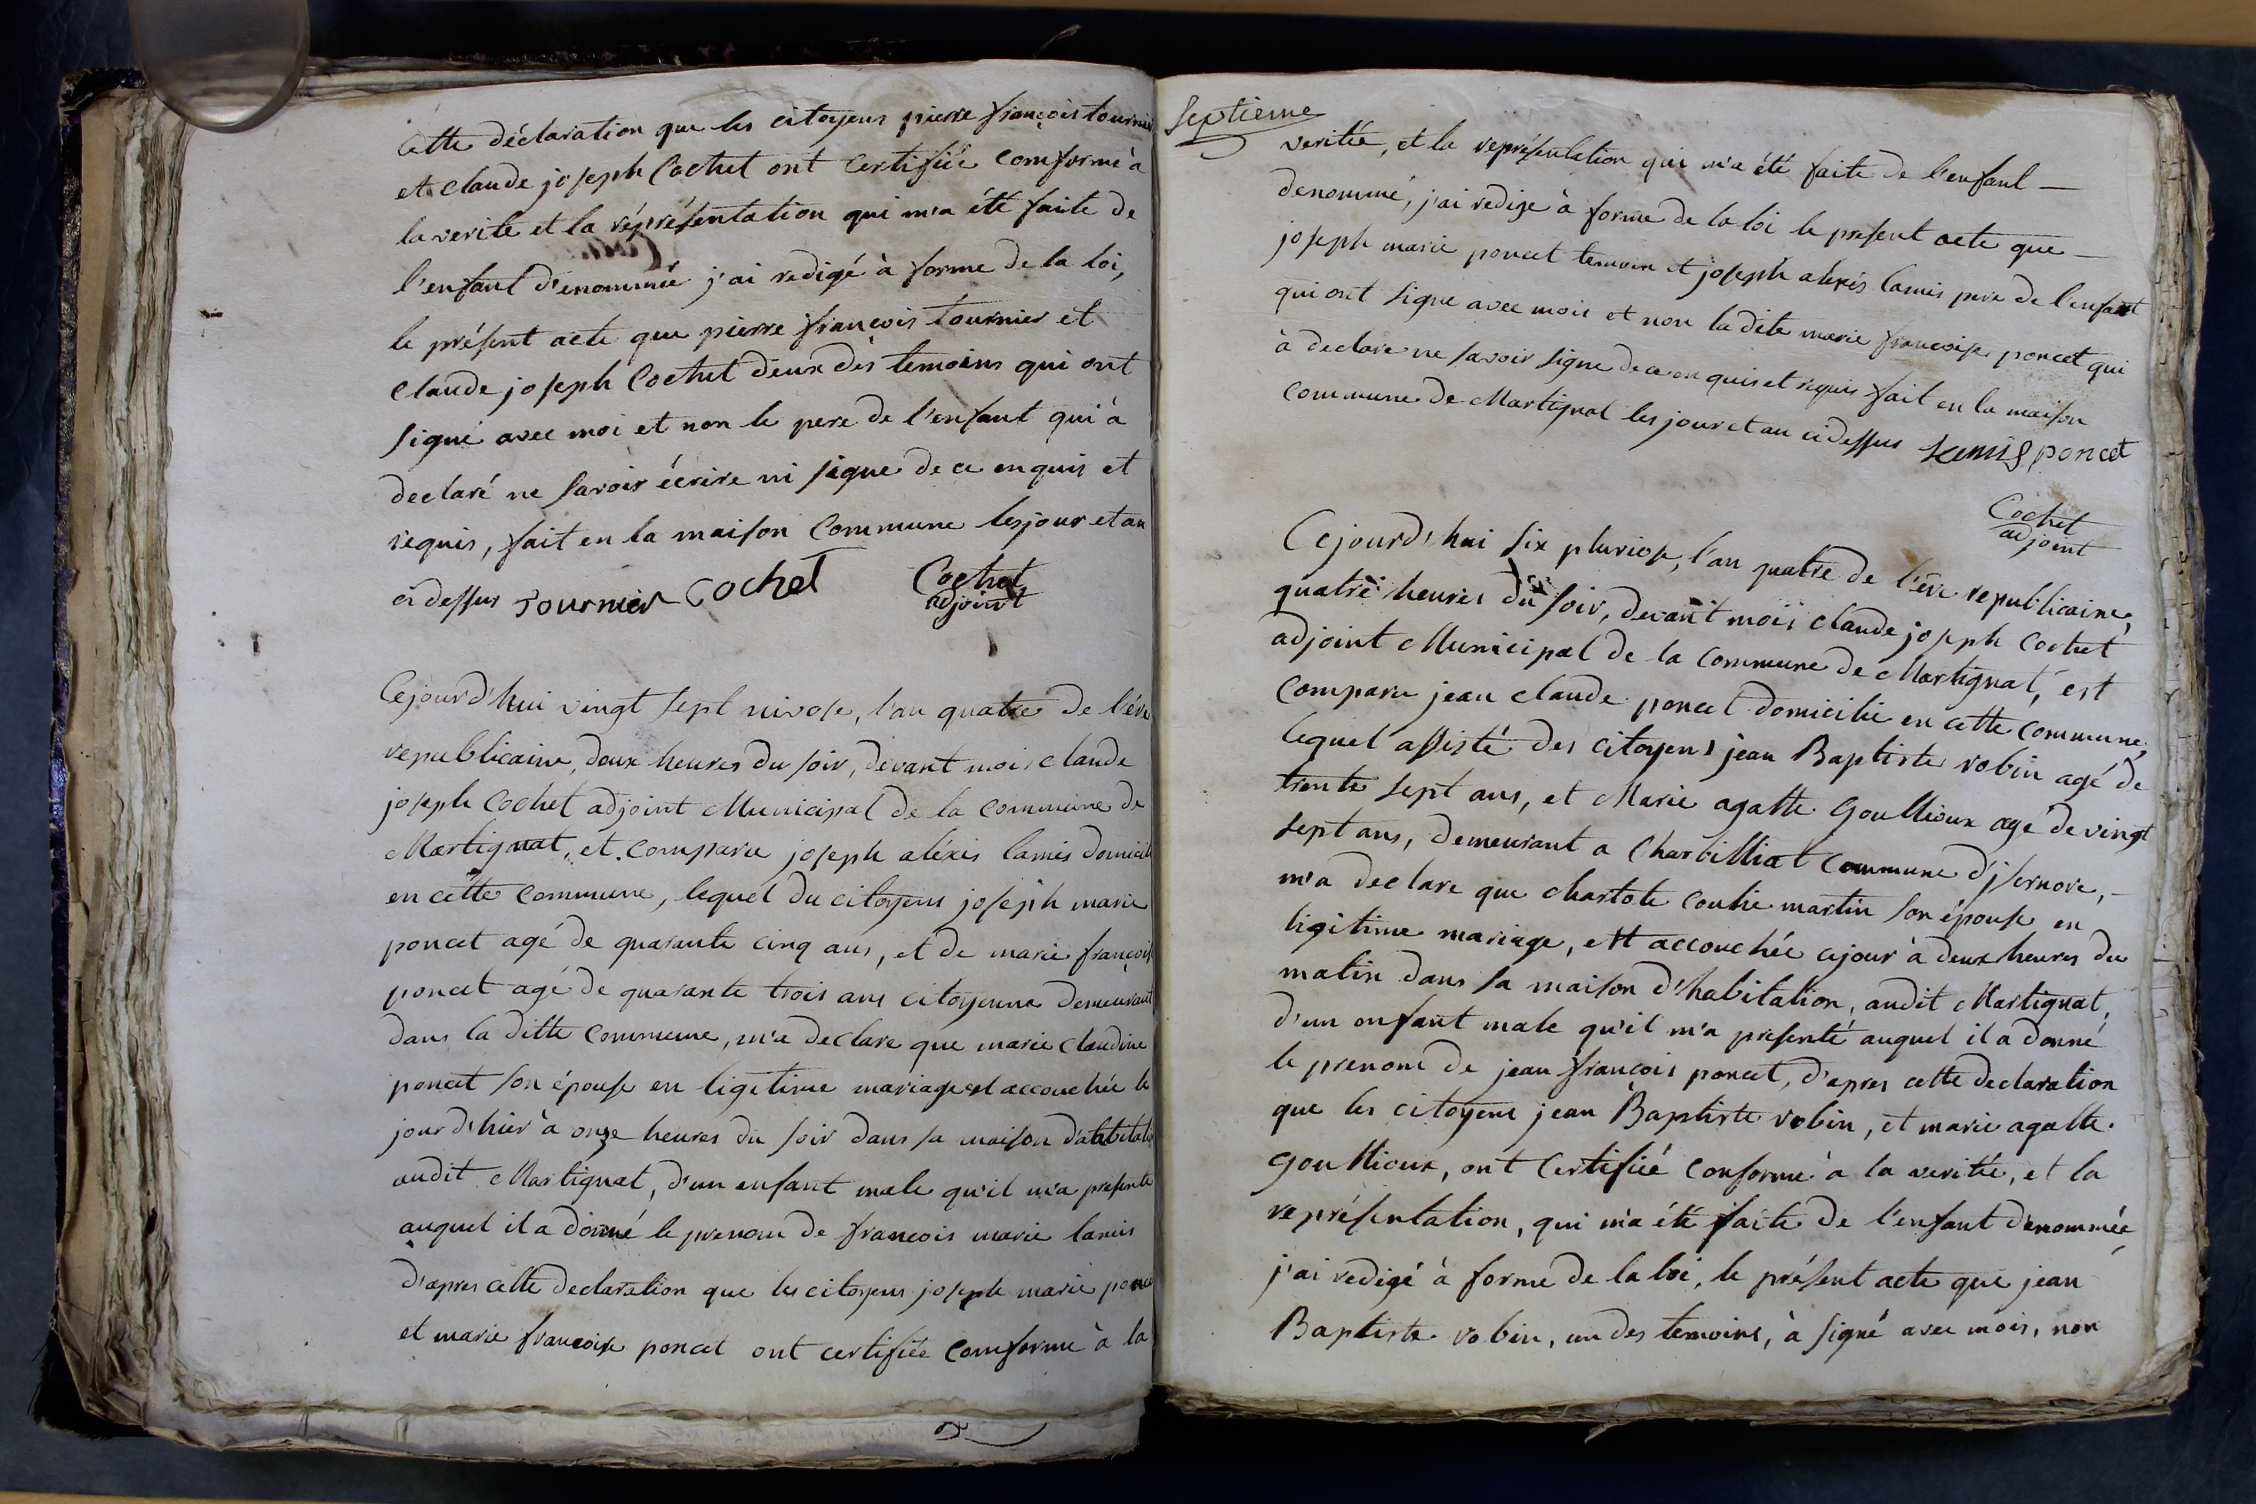 Cette déclaration que les citoyens pierre françois tournier
et claude joseph Cochet ont certifiée comforme à
la verite et la réprésentation qui m'a été faite de
l'enfant d'enommée j'ai redigé à forme de la loi,
le présent acte que pierre françois tournier et
claude joseph Cochet deux dès temoins qui ont
signé avec moi et non le pere de l'enfant qui à
declaré ne savoir écrire ni signe de ce enquis et
requis, fait en la maison Commune les jour et an
ci dessus Tournier Cochet Cochet
adjoint
Cejourd'hui vingt sept nivose, l'an quatre de l'ére
republicaine, deux heures du soir, devant moi claude
joseph Cochet adjoint Municipal de la Commune de
Martignat, et comparu joseph aléxis lamis domicilié
en cette Commune, lequel du citoyens joseph marie
poncet agé de quarante cinq ans, et de marie françoise
poncet agé de quarante trois ans citoyenne demeurant
dans la ditte commune, m'a declare que marie claudine
poncet son épouse en ligitime mariage est accouchée le
jour d'hier à onze heures du soir dans sa maison d'abitation
audit Martignat, d'un enfant male qu'il m'a presenté
auquel il a donné le prenom de françois marie lamis
d'apres cette declaration que les citoyens joseph marie poncet
et marie françoise poncet ont certifiée comforme à la
Septieme
veritée, et la représentation qui m'a été faite de l'enfant —
denommé, j'ai redige à forme de la loi le present acte que —
joseph marie poncet temoin et joseph alexis lamis pere de l'enfant
qui ont signe avec moi et non la dite marie françoise poncet qui
à declare ne savoir signe de ce en quis et requis fait en la maison
Commune de Martignat les jour et an ci dessus Lamis poncet
Cochet
adjoint
Cejourd'hui six pluviose, l'an quatre de l'ére republicaine,
quatre heures du soir, devant moi claude joseph Cochet
adjoint Municipal de la Commune de Martignat, est
comparu jean claude poncet domicilié en cette Commune,
lequel assisté des citoyens jean Baptiste robin agé de
trente sept ans, et Marie agatte Goullioux agé de vingt
sept ans, demeurant a Charbilliat Commune d'jsernore, -
m'a declare que charlote martin son épouse en
ligitime mariage, est accouchée cejour à deux heures du
matin dans sa maison d'habitation, audit Martignat,
d'un enfant male qu'il m'a presenté auquel il a donné
le prenom de jean françois poncet, d'apres cette declaration
que les citoyens jean Baptiste robin, et marie agatte.
Goullioux, ont Certifiée conforme à la veritée, et la
représentation, qui m'a été faite de l'enfant denommée
j'ai redigé à forme de la loi, le présent acte que jean
Baptiste robin, un des temoins, à signé avec mois, non